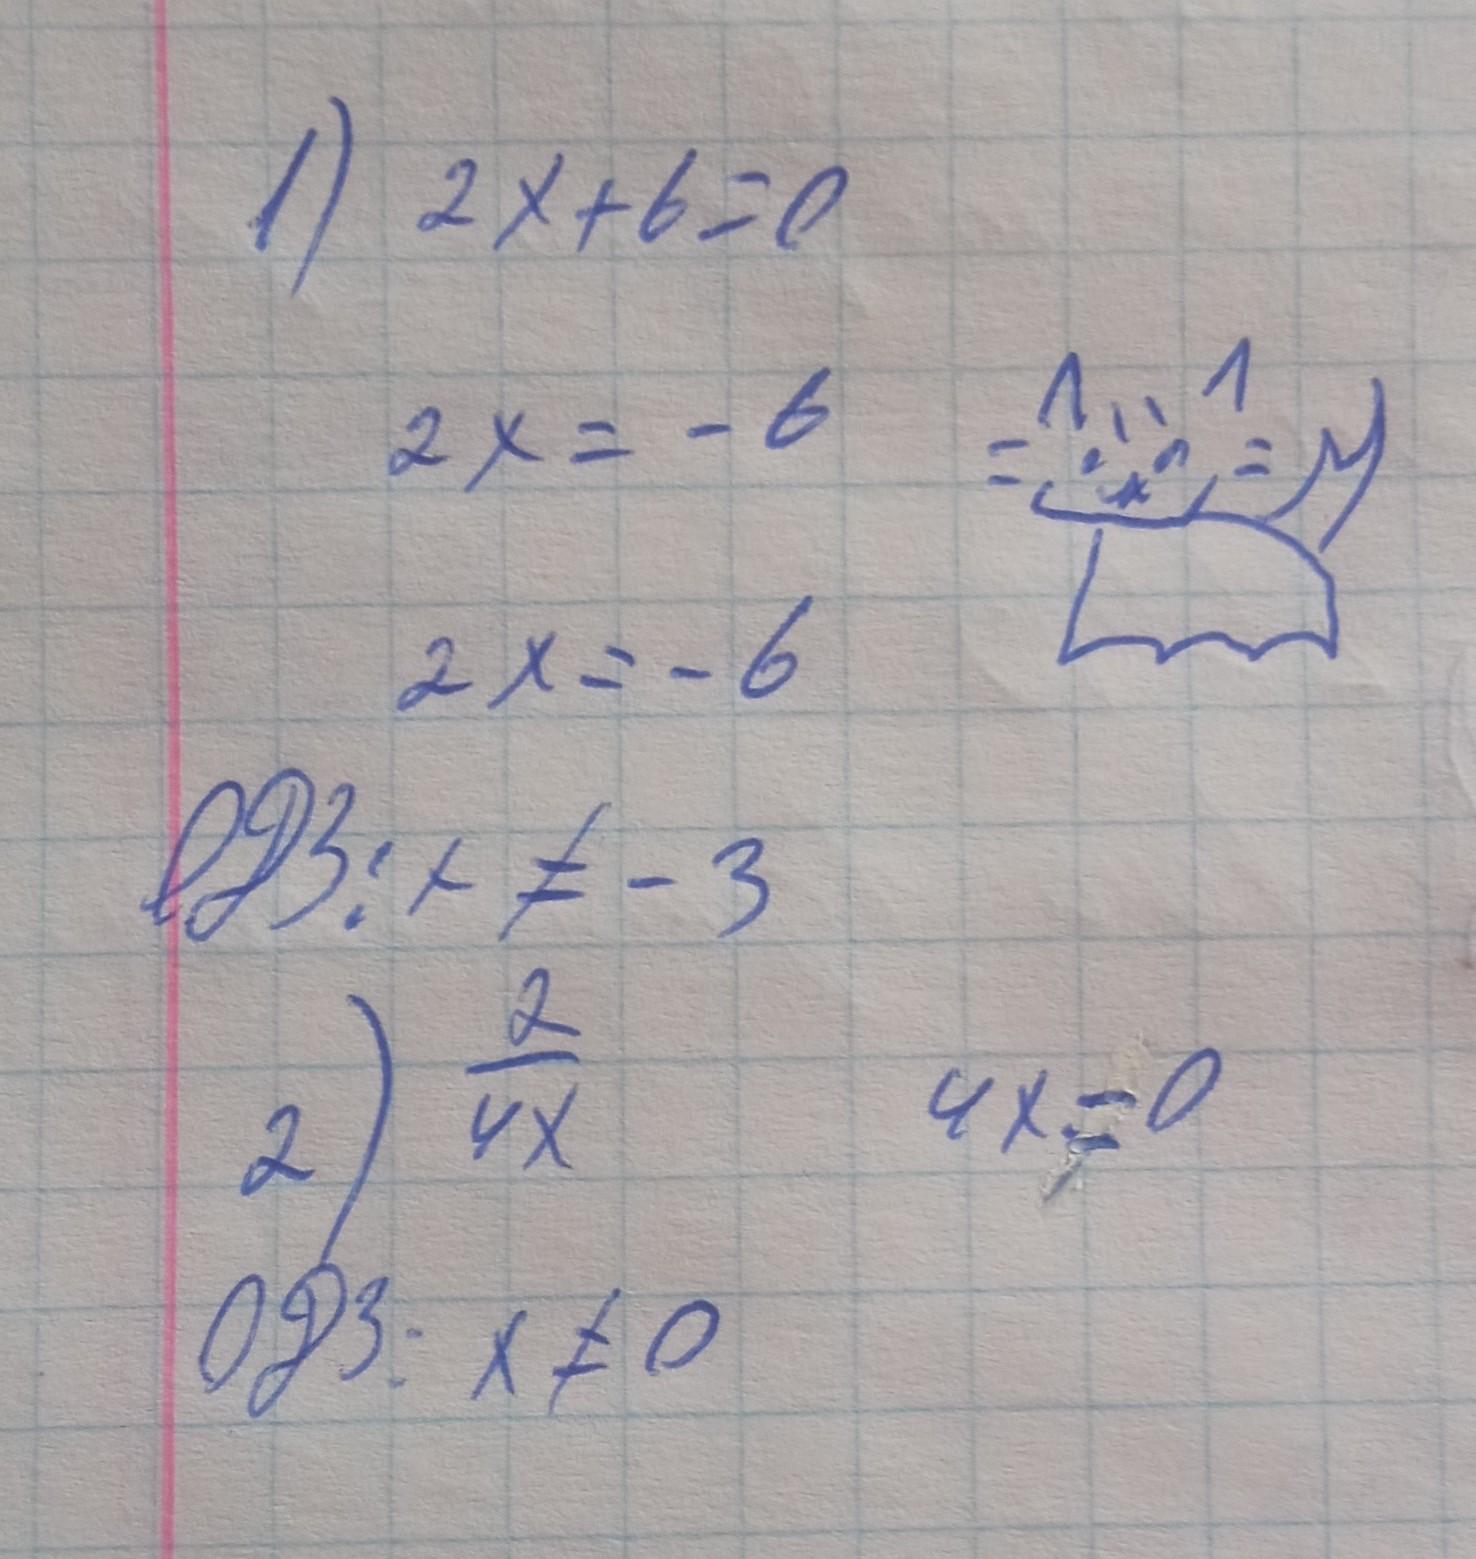 1) 2x+6=0
2x = -6
2x = -6
ОДЗ: x ≠ -3
2) 2/4x 4x = 0
ОДЗ: x ≠ 0